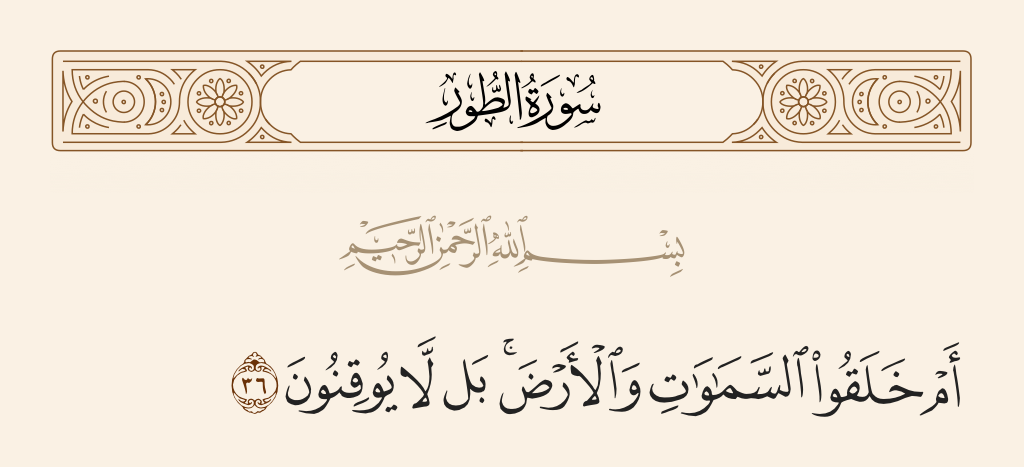 سُورَةُ الطُّورِ
بِسْمِ ٱللَّهِ ٱلرَّحْمَٰنِ ٱلرَّحِيمِ
أَمْ خَلَقُوا۟ ٱلسَّمَـٰوَٰتِ وَٱلْأَرْضَ ۚ بَل لَّا يُوقِنُونَ ٣٦